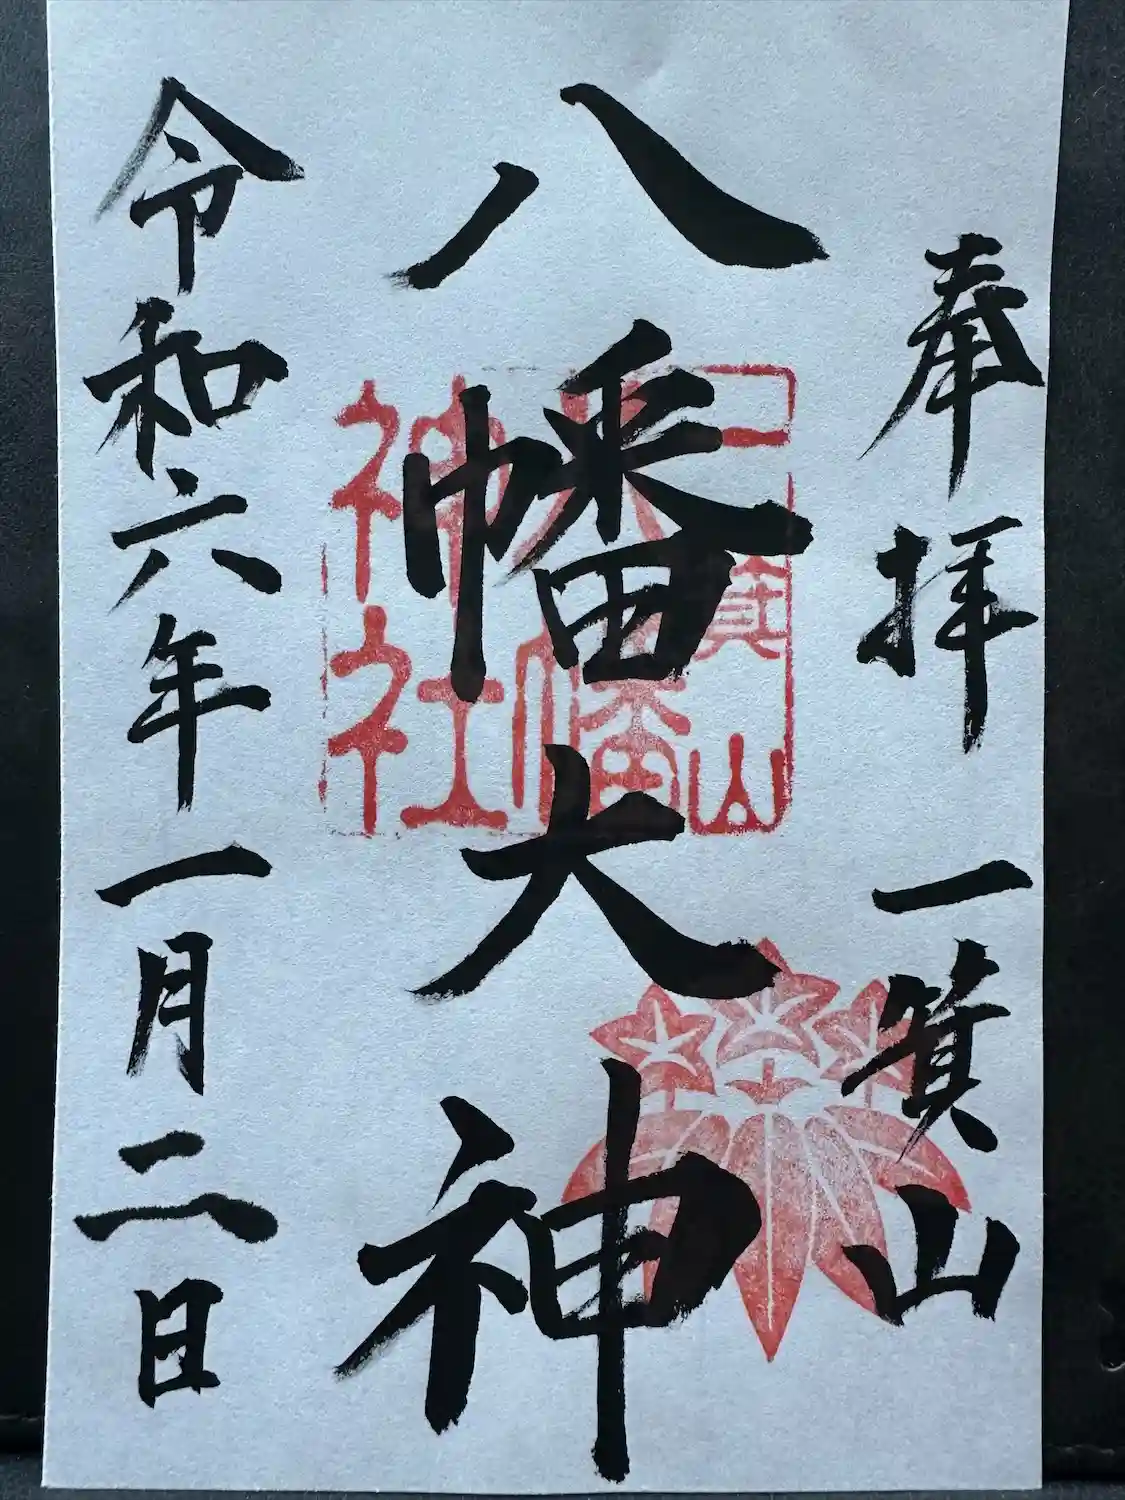 奉拝 一箕山
八幡大神
令和六年一月二日
一箕山
八幡
神社